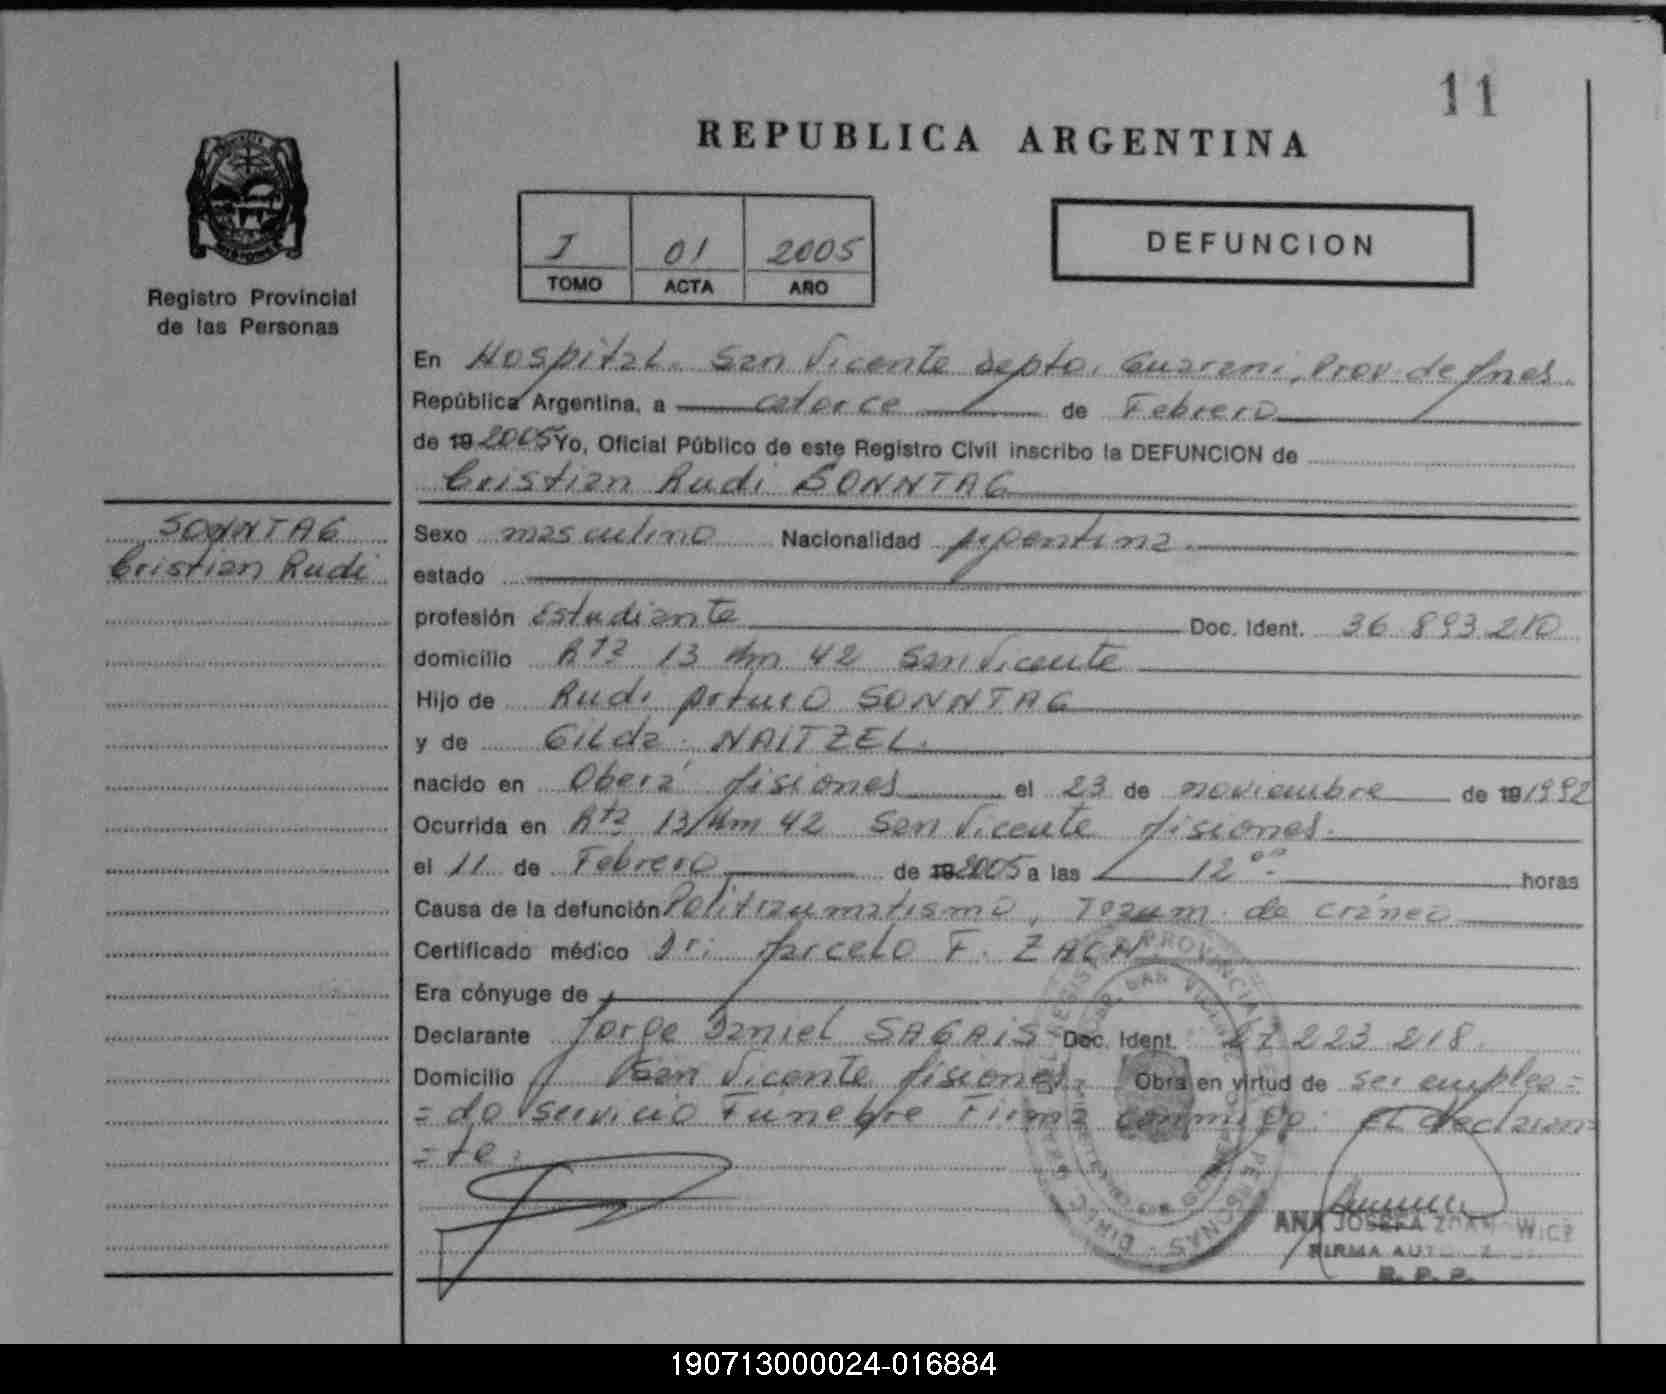 11
REPUBLICA ARGENTINA
I 01 2005
TOMO ACTA AÑO
DEFUNCION
Registro Provincial
de las Personas
En Hospital San Vicente Depto. Guarani, Prov. de Mnes.
República Argentina, a catorce de Febrero
de 19 2005 Yo, Oficial Público de este Registro Civil inscribo la DEFUNCION de
Cristian Rudi SONNTAG
SONNTAG
Cristian Rudi
Sexo masculino Nacionalidad Argentina.
estado
profesión Estudiante Doc. Ident. 36.893.210
domicilio Rta 13 Km 42 San Vicente
Hijo de Rudi Arturo SONNTAG
y de Gilda NAITZEL.
nacido en Oberá Misiones el 23 de noviembre de 19 1992
Ocurrida en Rta 13 Km 42 San Vicente Misiones.
el 11 de Febrero de 19 2005 a las 12 oo horas
Causa de la defunción Politraumatismo, Traum. de cráneo
Certificado médico Dr: Marcelo F. ZACH
Era cónyuge de
Declarante Jorge Daniel SAGAIS Doc. Ident. 27.223.218.
Domicilio San Vicente Misiones. Obra en virtud de ser emplea=
=do servicio Funebre Firma conmigo El declaran=
=te.
ANA JOSEFA
FIRMA
R. P. P.
190713000024-016884